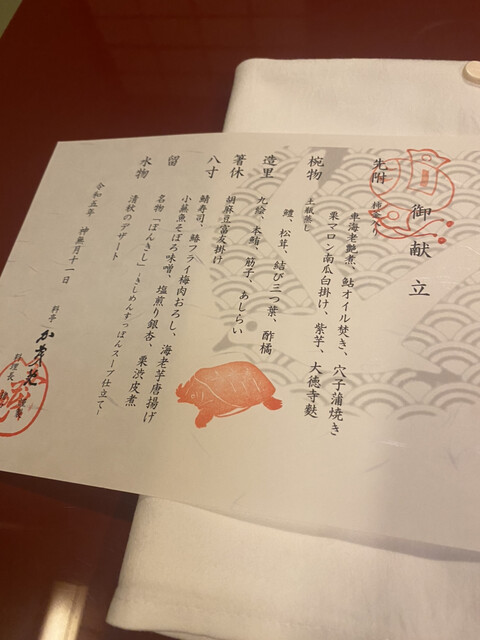 御献立
先附
車海老艶煮、鮎オイル焚き、穴子蒲焼き
栗マロン南瓜白掛け、紫芋、大徳寺麩
椀物
土瓶蒸し
鱧、松茸、結び三つ葉、酢橘
造里
九絵、本鮪、筋子、あしらい
箸休
胡麻豆富友掛け
八寸
鯖寿司、鰺フライ梅肉おろし、海老芋唐揚げ
小蕪魚そぼろ味噌、塩煎り銀杏、栗渋皮煮
留
名物「ぽんきし」~きしめんすっぽんスープ仕立て~
水物
清秋のデザート
令和五年 神無月十一日
料亭
料理長